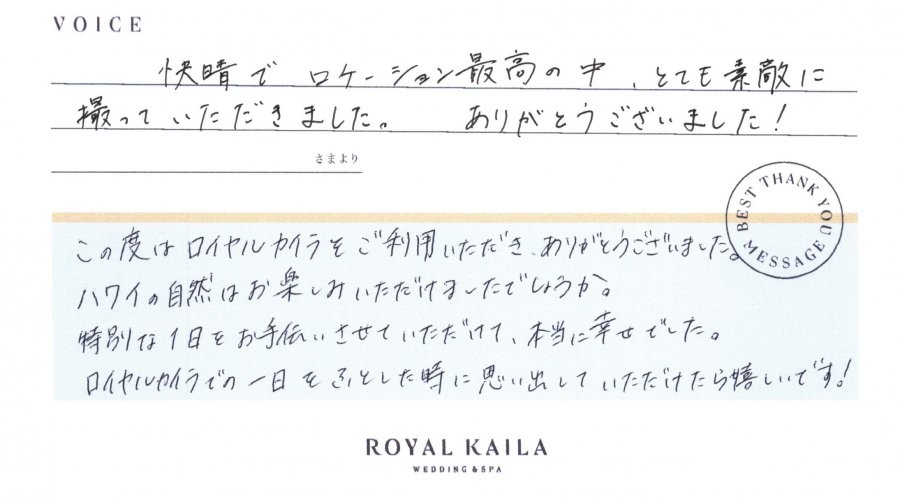 VOICE
快晴で ロケーション最高の中、とても素敵に
撮っていただきました。 ありがとうございました!
さまより
BEST THANK YOU MESSAGE
この度はロイヤルカイラをご利用いただき、ありがとうございました。
ハワイの自然はお楽しみいただけましたでしょうか。
特別な1日をお手伝いさせていただけて、本当に幸せでした。
ロイヤルカイラでの一日をふとした時に思い出していただけたら嬉しいです!
ROYAL KAILA
WEDDING & SPA